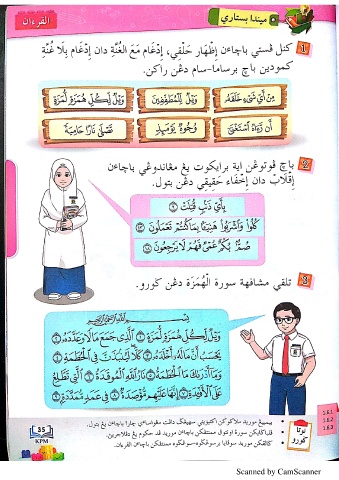 القرءان
ميندا بستاري
1 كنل ڤستي باچاءن إِظْهَار حَلْقِي، إِدْغَام مَعَ الغُنَّة دان إِدْغَام بِلَا غُنَّة
كمودين باچ برساما-سام دڠن راكن.
مِنْ أَيِّ شَىْءٍ خَلَقَهُۥ
وَيْلٌ لِّلْمُطَفِّفِينَ
وَيْلٌ لِّكُلِّ هُمَزَةٍ لُّمَزَةٍ
أَن رَّءَاهُ ٱسْتَغْنَىٰٓ
وُجُوهٌ يَوْمَئِذٍ
تَصْلَىٰ نَارًا حَامِيَةً
2 باچ ڤوتوڠن اية برايكوت يڠ مڠاندوڠي باچاءن
إِقْلَاب دان إِخْفَاء حَقِيقِي دڠن بتول.
بِأَىِّ ذَنۢبٍ قُتِلَتْ ٩
كُلُوا۟ وَٱشْرَبُوا۟ هَنِيٓـًٔۢا بِمَا كُنتُمْ تَعْمَلُونَ ٤٣
صُمٌّۢ بُكْمٌ عُمْىٌ فَهُمْ لَا يَرْجِعُونَ ١٨
3 تلقي مشافهة سورة الْهُمَزَة دڠن ݢورو.
بِسْمِ ٱللَّهِ ٱلرَّحْمَٰنِ ٱلرَّحِيمِ
وَيْلٌ لِّكُلِّ هُمَزَةٍ لُّمَزَةٍ ١ ٱلَّذِى جَمَعَ مَالًا وَعَدَّدَهُۥ ٢
يَحْسَبُ أَنَّ مَالَهُۥٓ أَخْلَدَهُۥ ٣ كَلَّا لَيُنۢبَذَنَّ فِى ٱلْحُطَمَةِ ٤
وَمَآ أَدْرَىٰكَ مَا ٱلْحُطَمَةُ ٥ نَارُ ٱللَّهِ ٱلْمُوقَدَةُ ٦ ٱلَّتِى تَطَّلِعُ
عَلَى ٱلْأَفْـِٔدَةِ ٧ إِنَّهَا عَلَيْهِم مُّؤْصَدَةٌ ٨ فِى عَمَدٍ مُّمَدَّدَةٍۭ ٩
1.6.1
1.6.2
1.6.3
نوتا
ݢورو
35
KPM
Scanned by CamScanner